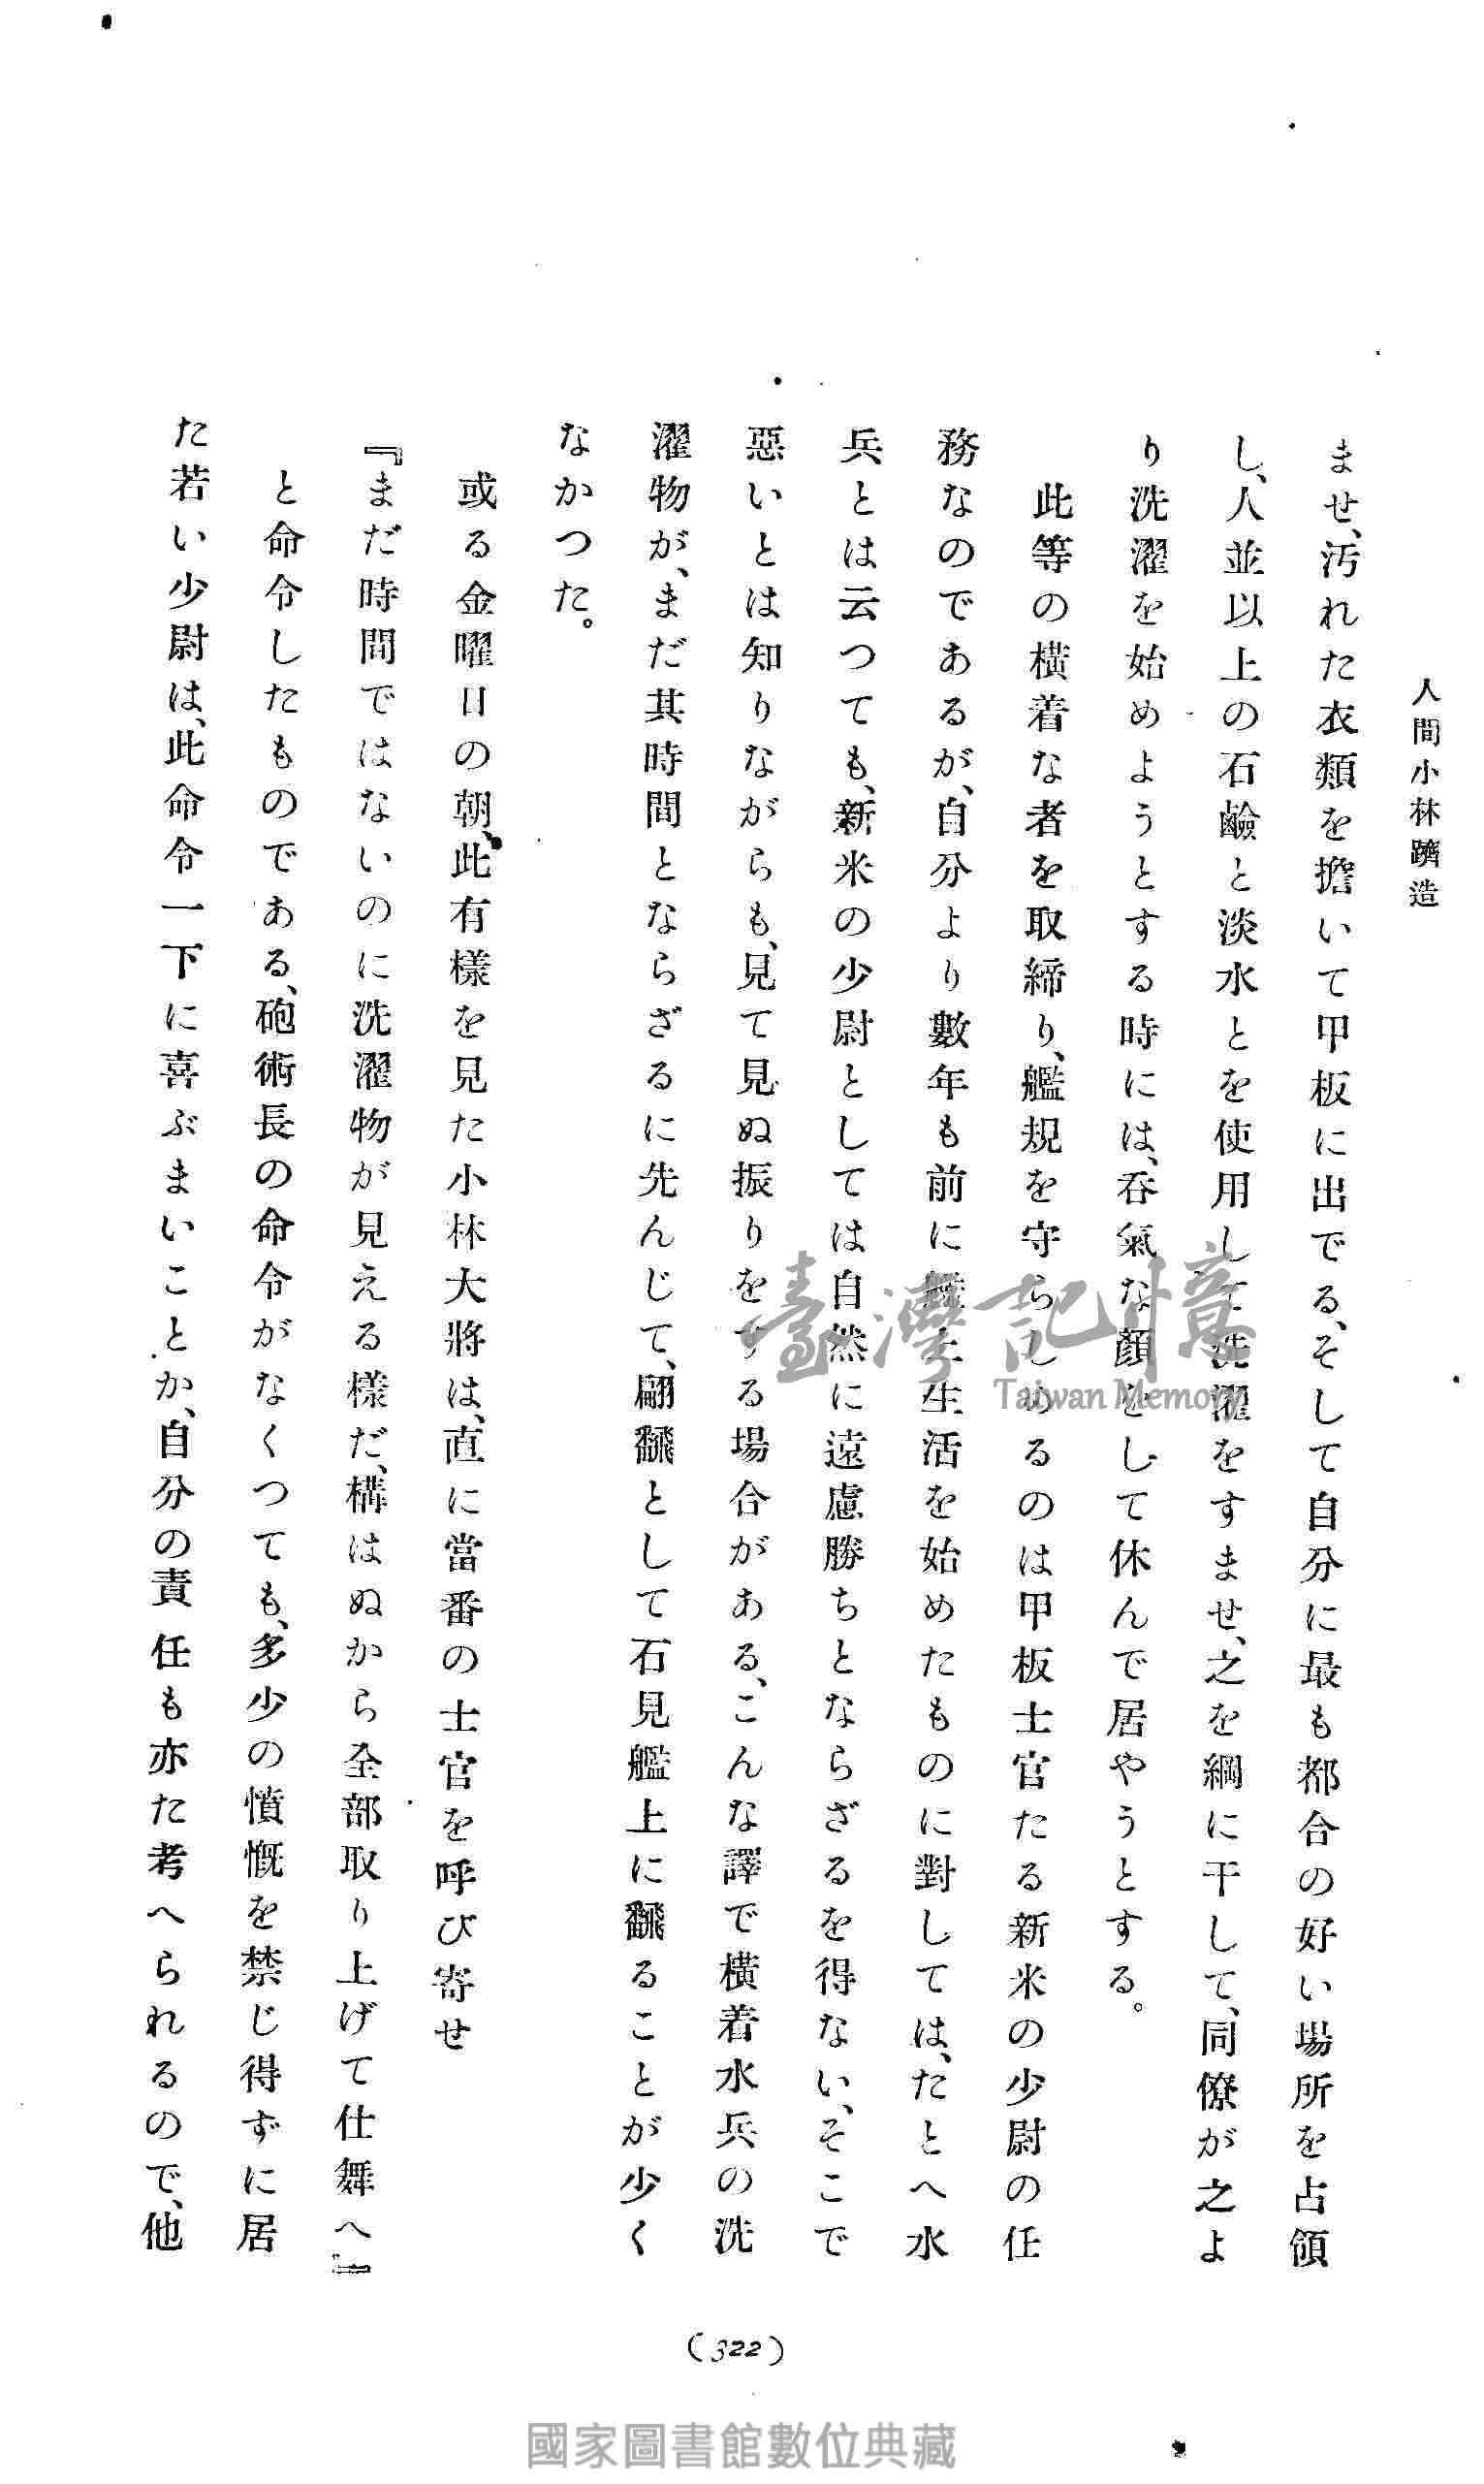 人間小林躋造
ませ、汚れた衣類を擔いて甲板に出でる、そして自分に最も都合の好い場所を占領
し、人並以上の石鹼と淡水とを使用して洗濯をすませ、之を綱に干して、同僚が之よ
り洗濯を始めようとする時には、呑氣な顏をして休んで居やうとする。
此等の橫着な者を取締り、艦規を守らしめるのは甲板士官たる新米の少尉の任
務なのであるが、自分より數年も前に艦上生活を始めたものに對しては、たとへ水
兵とは云つても、新米の少尉としては自然に遠慮勝ちとならざるを得ない、そこで
惡いとは知りながらも、見て見ぬ振りをする場合がある、こんな譯で橫着水兵の洗
濯物が、まだ其時間とならざるに先んじて、翩飜として石見艦上に飜ることが少く
なかつた。
或る金曜日の朝、此有樣を見た小林大將は、直に當番の士官を呼び寄せ
『まだ時間ではないのに洗濯物が見える樣だ、構はぬから全部取り上げて仕舞へ』
と命令したものである、砲術長の命令がなくつても、多少の憤慨を禁じ得ずに居
た若い少尉は、此命令一下に喜ぶまいことか、自分の責任も亦た考へられるので、他
(322)
臺灣記憶
Taiwan Memory
國家圖書館數位典藏